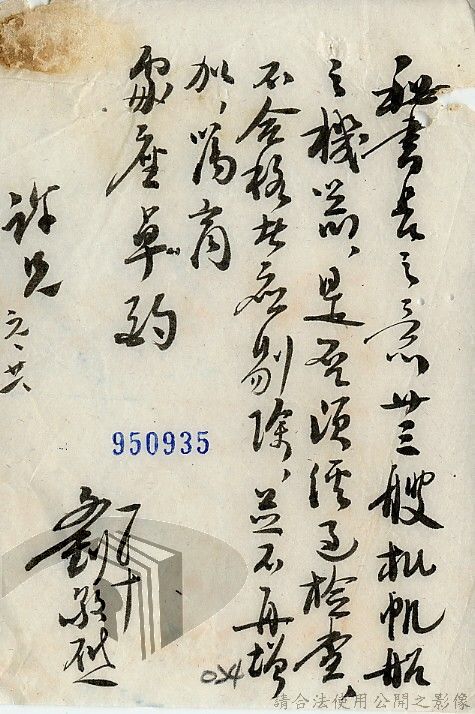 秘書長之意卅三艘机帆船
之機器、是否須經過檢查、
不合格者應剔除、並不再增
加、
處座卓酌
許兄 元、廿六
950935
劉
054
請合法使用公開之影像